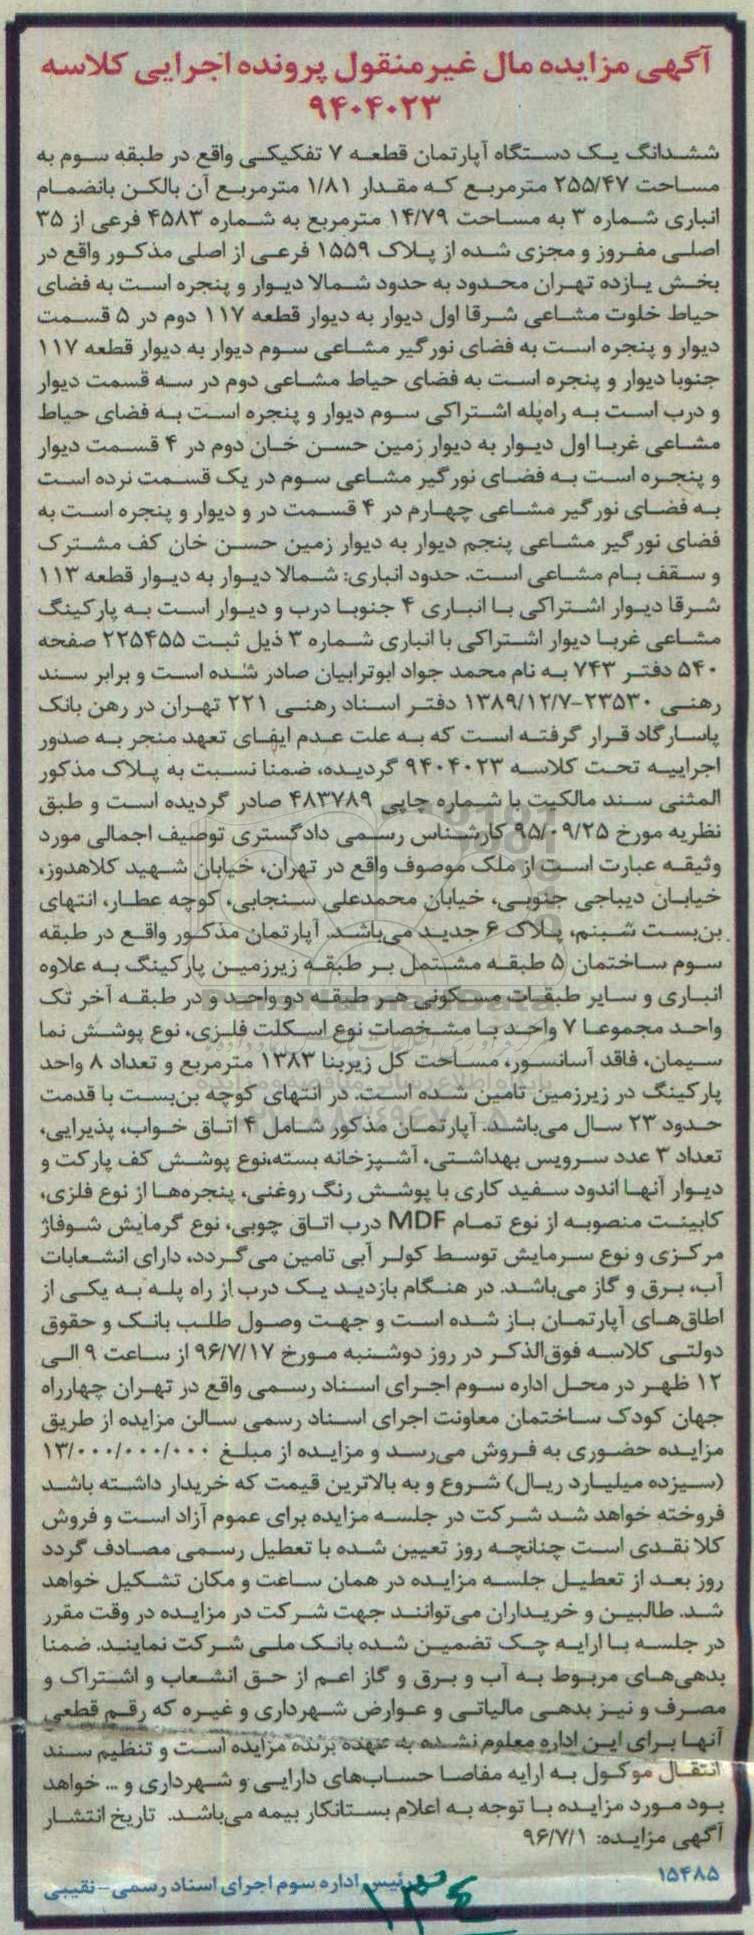 آگهی مزایده مال غیرمنقول پرونده اجرایی کلاسه
۹۴۰۴۰۲۳
ششدانگ یک دستگاه آپارتمان قطعه ۷ تفکیکی واقع در طبقه سوم به
مساحت ۲۵۵/۴۷ مترمربع که مقدار ۱/۸۱ مترمربع آن بالکن بانضمام
انباری شماره ۳ به مساحت ۱۴/۷۹ مترمربع به شماره ۴۵۸۳ فرعی از ۳۵
اصلی مفروز و مجزی شده از پلاک ۱۵۵۹ فرعی از اصلی مذکور واقع در
بخش یازده تهران محدود به حدود شمالا دیوار و پنجره است به فضای
حیاط خلوت مشاعی شرقا اول دیوار به دیوار قطعه ۱۱۷ دوم در ۵ قسمت
دیوار و پنجره است به فضای نورگیر مشاعی سوم دیوار به دیوار قطعه ۱۱۷
جنوبا دیوار و پنجره است به فضای حیاط مشاعی دوم در سه قسمت دیوار
و درب است به راه‌پله اشتراکی سوم دیوار و پنجره است به فضای حیاط
مشاعی غربا اول دیوار به دیوار زمین حسن خان دوم در ۴ قسمت دیوار
و پنجره است به فضای نورگیر مشاعی سوم در یک قسمت نرده است
به فضای نورگیر مشاعی چهارم در ۴ قسمت در و دیوار و پنجره است به
فضای نورگیر مشاعی پنجم دیوار به دیوار زمین حسن خان کف مشترک
و سقف بام مشاعی است. حدود انباری: شمالا دیوار به دیوار قطعه ۱۱۳
شرقا دیوار اشتراکی با انباری ۴ جنوبا درب و دیوار است به پارکینگ
مشاعی غربا دیوار اشتراکی با انباری شماره ۳ ذیل ثبت ۲۲۵۴۵۵ صفحه
۵۴۰ دفتر ۷۴۳ به نام محمد جواد ابوترابیان صادر شده است و برابر سند
رهنی ۲۳۵۳۰-۱۳۸۹/۱۲/۷ دفتر اسناد رهنی ۲۲۱ تهران در رهن بانک
پاسارگاد قرار گرفته است که به علت عدم ایفای تعهد منجر به صدور
اجراییه تحت کلاسه ۹۴۰۴۰۲۳ گردیده، ضمنا نسبت به پلاک مذکور
المثنی سند مالکیت با شماره چاپی ۴۸۳۷۸۹ صادر گردیده است و طبق
نظریه مورخ ۹۵/۰۹/۲۵ کارشناس رسمی دادگستری توصیف اجمالی مورد
وثیقه عبارت است از ملک موصوف واقع در تهران، خیابان شهید کلاهدوز،
خیابان دیباجی جنوبی، خیابان محمدعلی سنجابی، کوچه عطار، انتهای
بن‌بست شبنم، پلاک ۶ جدید می‌باشد. آپارتمان مذکور واقع در طبقه
سوم ساختمان ۵ طبقه مشتمل بر طبقه زیرزمین پارکینگ به علاوه
انباری و سایر طبقات مسکونی هر طبقه دو واحد و در طبقه آخر تک
واحد مجموعا ۷ واحد با مشخصات نوع اسکلت فلزی، نوع پوشش نما
سیمان، فاقد آسانسور، مساحت کل زیربنا ۱۳۸۳ مترمربع و تعداد ۸ واحد
پارکینگ در زیرزمین تامین شده است. در انتهای کوچه بن‌بست با قدمت
حدود ۲۳ سال می‌باشد. آپارتمان مذکور شامل ۴ اتاق خواب، پذیرایی،
تعداد ۳ عدد سرویس بهداشتی، آشپزخانه بسته،نوع پوشش کف پارکت و
دیوار آنها اندود سفید کاری با پوشش رنگ روغنی، پنجره‌ها از نوع فلزی،
کابینت منصوبه از نوع تمام MDF درب اتاق چوبی، نوع گرمایش شوفاژ
مرکزی و نوع سرمایش توسط کولر آبی تامین می‌گردد، دارای انشعابات
آب، برق و گاز می‌باشد. در هنگام بازدید یک درب از راه پله به یکی از
اطاق‌های آپارتمان باز شده است و جهت وصول طلب بانک و حقوق
دولتی کلاسه فوق‌الذکر در روز دوشنبه مورخ ۹۶/۷/۱۷ از ساعت ۹ الی
۱۲ ظهر در محل اداره سوم اجرای اسناد رسمی واقع در تهران چهارراه
جهان کودک ساختمان معاونت اجرای اسناد رسمی سالن مزایده از طریق
مزایده حضوری به فروش می‌رسد و مزایده از مبلغ ۱۳/۰۰۰/۰۰۰/۰۰۰
(سیزده میلیارد ریال) شروع و به بالاترین قیمت که خریدار داشته باشد
فروخته خواهد شد شرکت در جلسه مزایده برای عموم آزاد است و فروش
کلا نقدی است چنانچه روز تعیین شده با تعطیل رسمی مصادف گردد
روز بعد از تعطیل جلسه مزایده در همان ساعت و مکان تشکیل خواهد
شد. طالبین و خریداران می‌توانند جهت شرکت در مزایده در وقت مقرر
در جلسه با ارایه چک تضمین شده بانک ملی شرکت نمایند. ضمنا
بدهی‌های مربوط به آب و برق و گاز اعم از حق انشعاب و اشتراک و
مصرف و نیز بدهی مالیاتی و عوارض شهرداری و غیره که رقم قطعی
آنها برای این اداره معلوم نشده به عهده برنده مزایده است و تنظیم سند
انتقال موکول به ارایه مفاصا حساب‌های دارایی و شهرداری و ... خواهد
بود مورد مزایده با توجه به اعلام بستانکار بیمه می‌باشد. تاریخ انتشار
آگهی مزایده: ۹۶/۷/۱
۱۵۴۸۵
رئیس اداره سوم اجرای اسناد رسمی-نقیبی